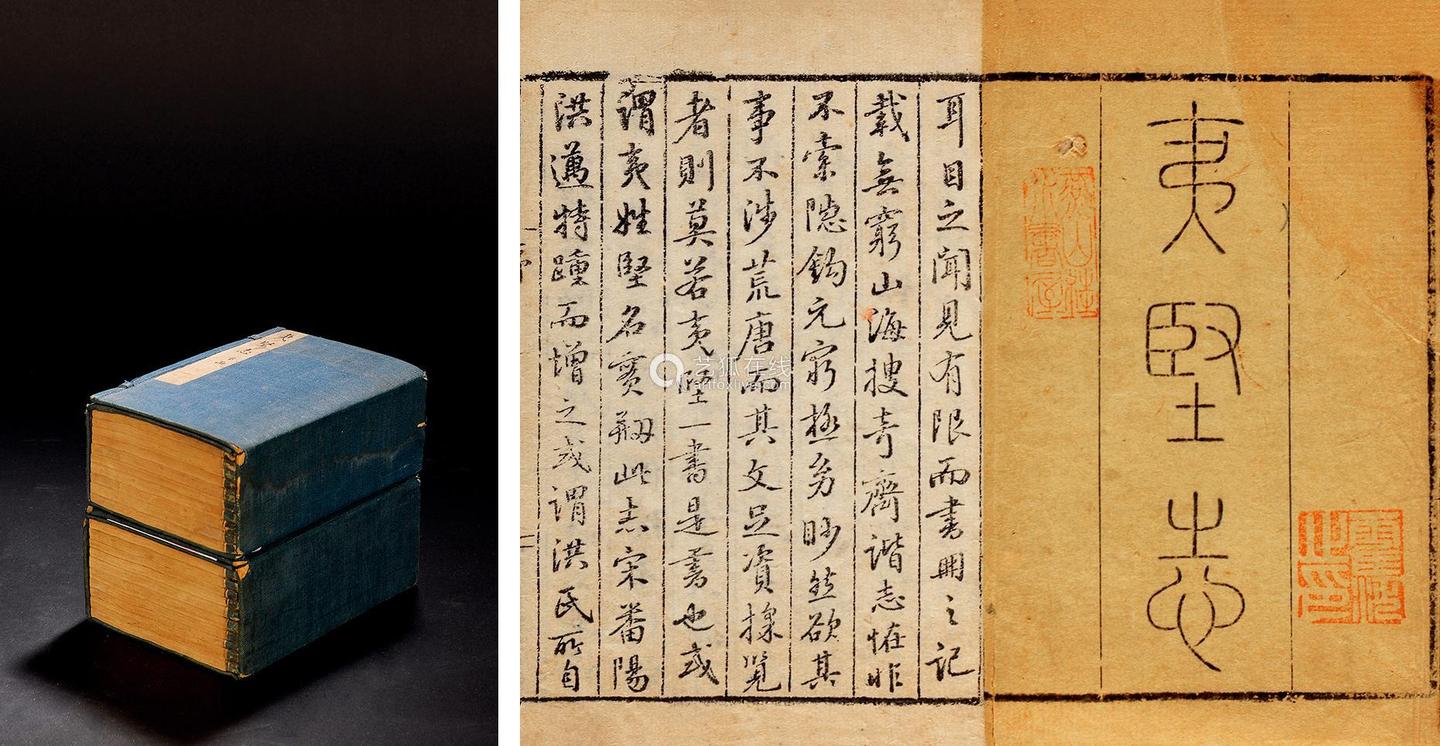 夷堅志
耳目之聞見有限而書冊之記
載無窮山海搜奇齊諧志恠非
不索隱鈎元窮極幼眇然欲其
事不涉荒唐而其文足資採覽
者則莫若夷堅一書是書也或
謂夷姓堅名實剏此志宋番陽
洪邁特踵而增之或謂洪氏所自
艺狐在线
artfoxlive.com